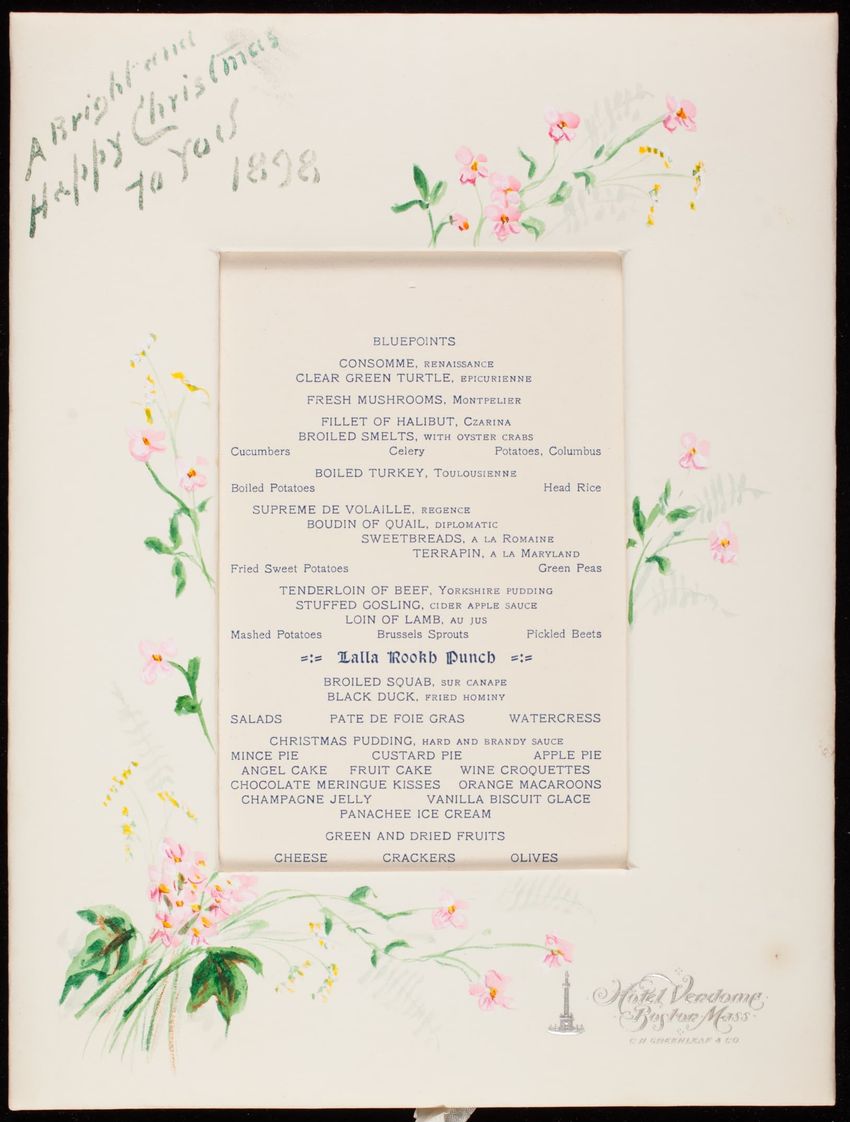 A Bright and
Happy Christmas
to You
1898
BLUEPOINTS
CONSOMME, RENAISSANCE
CLEAR GREEN TURTLE, EPICURIENNE
FRESH MUSHROOMS, MONTPELIER
FILLET OF HALIBUT, CZARINA
BROILED SMELTS, WITH OYSTER CRABS
Cucumbers Celery Potatoes, Columbus
BOILED TURKEY, TOULOUSIENNE
Boiled Potatoes Head Rice
SUPREME DE VOLAILLE, REGENCE
BOUDIN OF QUAIL, DIPLOMATIC
SWEETBREADS, A LA ROMAINE
TERRAPIN, A LA MARYLAND
Fried Sweet Potatoes Green Peas
TENDERLOIN OF BEEF, YORKSHIRE PUDDING
STUFFED GOSLING, CIDER APPLE SAUCE
LOIN OF LAMB, AU JUS
Mashed Potatoes Brussels Sprouts Pickled Beets
=:= Lalla Rookh Punch =:=
BROILED SQUAB, SUR CANAPE
BLACK DUCK, FRIED HOMINY
SALADS PATE DE FOIE GRAS WATERCRESS
CHRISTMAS PUDDING, HARD AND BRANDY SAUCE
MINCE PIE CUSTARD PIE APPLE PIE
ANGEL CAKE FRUIT CAKE WINE CROQUETTES
CHOCOLATE MERINGUE KISSES ORANGE MACAROONS
CHAMPAGNE JELLY VANILLA BISCUIT GLACE
PANACHEE ICE CREAM
GREEN AND DRIED FRUITS
CHEESE CRACKERS OLIVES
Hotel Vendome
Boston Mass.
C. H. GREENLEAF & CO.